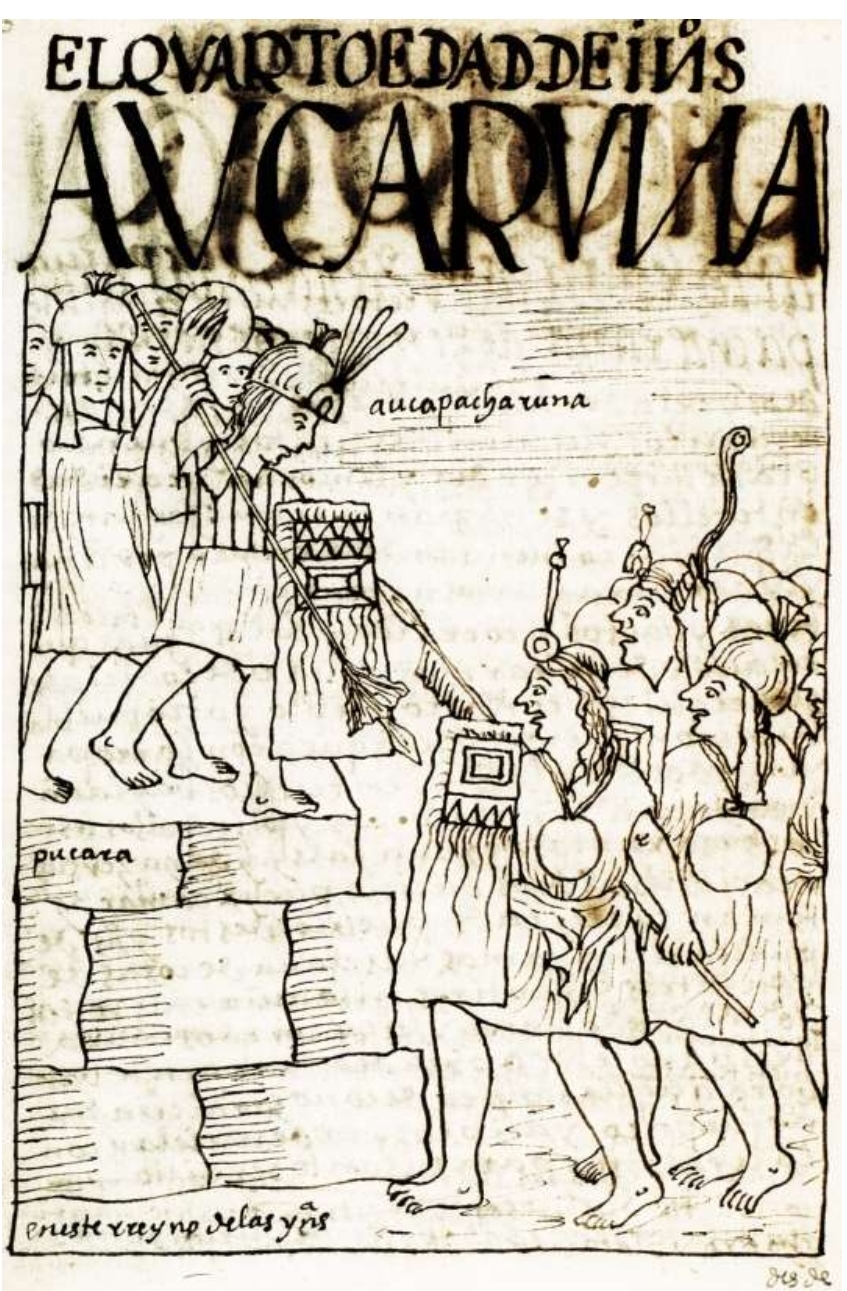 EL QVARTO EDAD DE ĪnºS
AVCARVNA
aucapacharuna
pucara
en este rreyno de las ynªs
des de